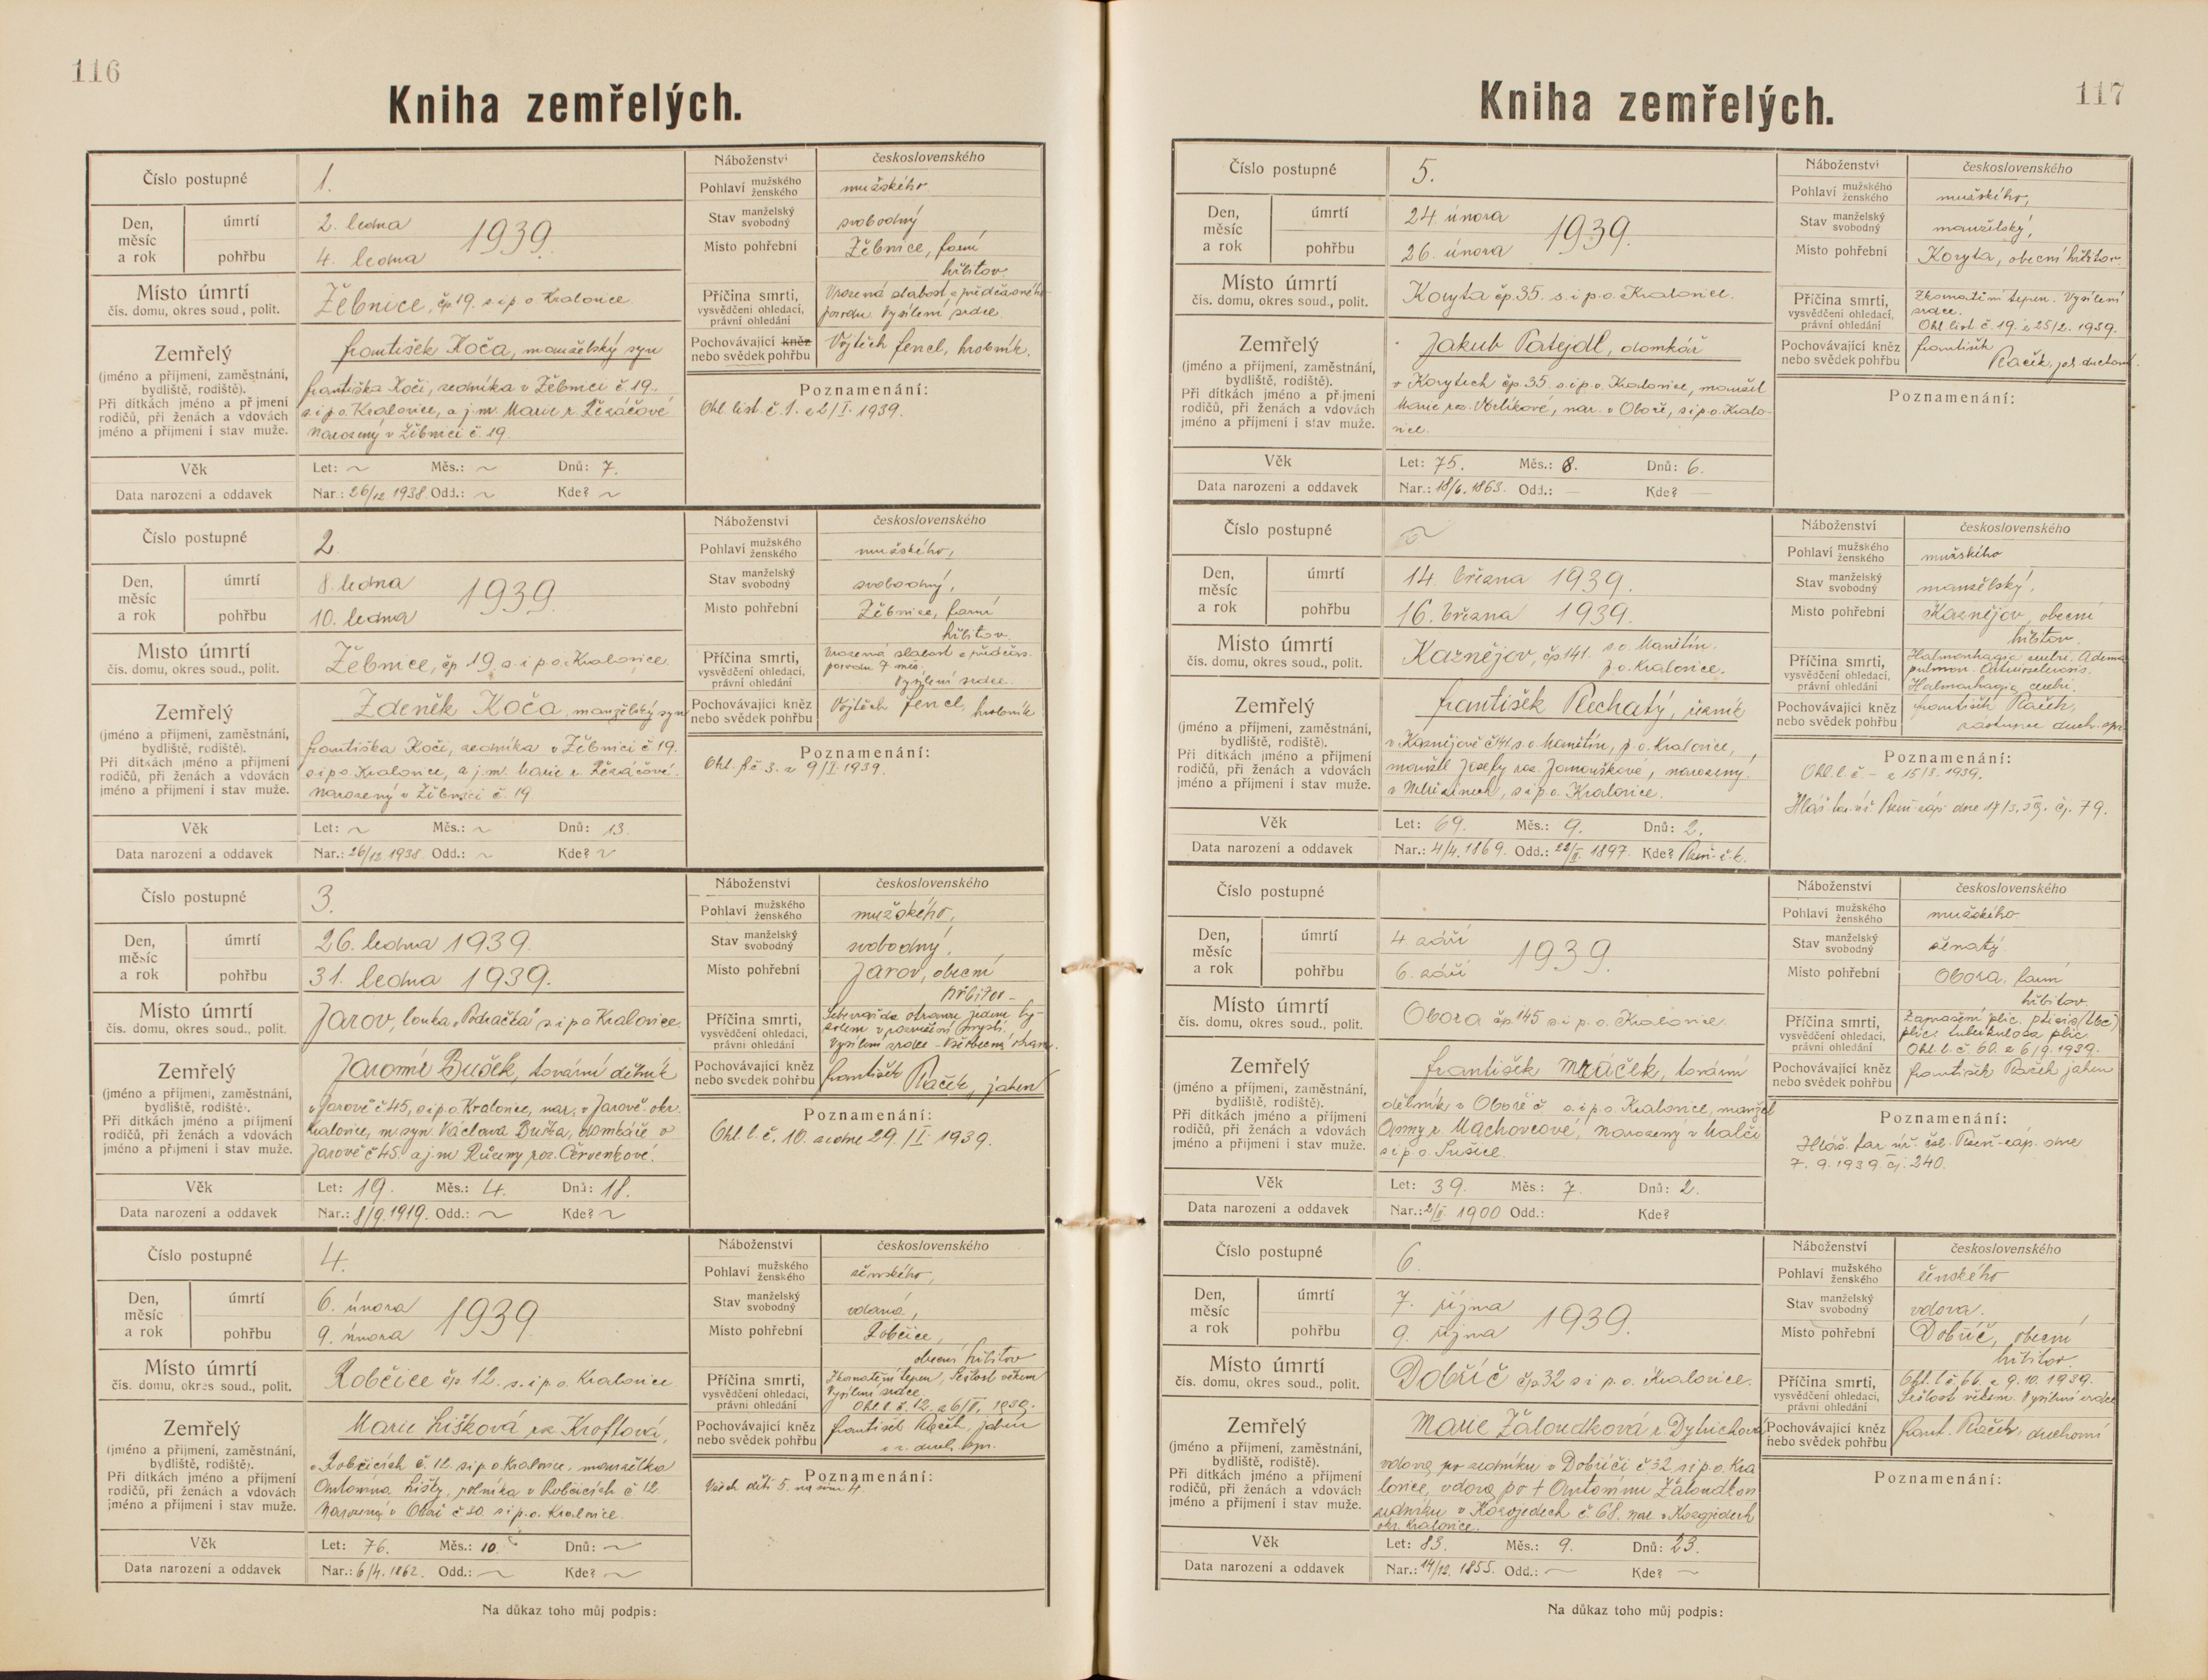 116
Kniha zemřelých.
Číslo postupné 1.
Náboženství československého
Pohlaví mužského ženského mužského
Den, měsíc a rok úmrtí 2. ledna 1939.
pohřbu 4. ledna
Stav manželský svobodný svobodný
Místo pohřební Žebnice, farní
hřbitov.
Místo úmrtí
čís. domu, okres soud., polit. Žebnice, čp 19. s. i p. o. Kralovice.
Příčina smrti, vysvědčení ohledací, právní ohledání
Vrozená slabost z předčasného
porodu. Vysílení srdce.
Zemřelý
(jméno a příjmení, zaměstnání, bydliště, rodiště).
Při dítkách jméno a příjmení rodičů, při ženách a vdovách jméno a příjmení i stav muže.
František Koča, manželský syn
Františka Koči, sedníka v Žebnici č. 19.,
s. i p. o. Kralovice, a j. m. Marie r. Řezáčové
Narozený v Žebnici č. 19.
Pochovávající kněz nebo svědek pohřbu Vojtěch Fencl, hrobník.
Poznamenání:
Ohl. list. č. 1. z 2/I. 1939.
Věk Let: ~ Měs.: ~ Dnů: 7.
Data narození a oddavek Nar.: 26/12 1938. Odd.: ~ Kde? ~
Číslo postupné 2.
Náboženství československého
Pohlaví mužského ženského mužského,
Den, měsíc a rok úmrtí 8. ledna 1939.
pohřbu 10. ledna
Stav manželský svobodný svobodný,
Místo pohřební Žebnice, farní
hřbitov.
Místo úmrtí
čís. domu, okres soud., polit. Žebnice, čp. 19. s. i p. o. Kralovice
Příčina smrti, vysvědčení ohledací, právní ohledání
Vrozená slabost z předčas.
porodu 7 měs.
Vysílení srdce.
Zemřelý
(jméno a příjmení, zaměstnání, bydliště, rodiště).
Při dítkách jméno a příjmení rodičů, při ženách a vdovách jméno a příjmení i stav muže.
Zdeněk Koča, manželský syn
Františka Koči, sedníka v Žebnici č. 19.
s. i p. o. Kralovice, a j. m. Marie r. Řezáčové.
Narozený v Žebnici č. 19.
Pochovávající kněz nebo svědek pohřbu Vojtěch Fencl, hrobník
Poznamenání:
Ohl. č 3. z 9/I. 1939.
Věk Let: ~ Měs.: ~ Dnů: 13.
Data narození a oddavek Nar.: 26/12 1938. Odd.: ~ Kde? ~
Číslo postupné 3.
Náboženství československého
Pohlaví mužského ženského mužského,
Den, měsíc a rok úmrtí 26. ledna 1939.
pohřbu 31. ledna 1939.
Stav manželský svobodný svobodný,
Místo pohřební Jarov, obecní
hřbitov
Místo úmrtí
čís. domu, okres soud., polit. Jarov, louka s. i p. o Kralovice.
Příčina smrti, vysvědčení ohledací, právní ohledání
Sebevražda otravou jedem
Vysílení srdce
Zemřelý
(jméno a příjmení, zaměstnání, bydliště, rodiště).
Při dítkách jméno a příjmení rodičů, při ženách a vdovách jméno a příjmení i stav muže.
Jaromír Bušek, tovární dělník
v Jarově č 45, s. i p. o. Kralovice, nar. v Jarově okr.
Kralovice, m. syn Václava Buška, domkáře v
Jarově č 45. a j. m. Růženy roz. Červenkové.
Pochovávající kněz nebo svědek pohřbu František Raček, jahen
Poznamenání:
Ohl. l. č. 10. ze dne 29/I 1939.
Věk Let: 19. Měs.: 4. Dnů: 18.
Data narození a oddavek Nar.: 8/9. 1919. Odd.: ~ Kde? ~
Číslo postupné 4.
Náboženství československého
Pohlaví mužského ženského ženského,
Den, měsíc a rok úmrtí 6. února 1939
pohřbu 9. února
Stav manželský svobodný vdaná,
Místo pohřební Robčice,
obecní hřbitov
Místo úmrtí
čís. domu, okres soud., polit. Robčice čp 12. s. i p. o. Kralovice
Příčina smrti, vysvědčení ohledací, právní ohledání
Zkornatění tepen, Sešlost věkem
Vysílení srdce
Ohl. l. č. 12. z 6/II. 1939.
Zemřelý
(jméno a příjmení, zaměstnání, bydliště, rodiště).
Při dítkách jméno a příjmení rodičů, při ženách a vdovách jméno a příjmení i stav muže.
Marie Lišková roz. Kroftová,
v Robčicích č. 12. s. i p. o. Kralovice, manželka
Antonína Lišky, rolníka v Robčicích č. 12.
Narozená v Oboře č 30. s i p. o. Kralovice.
Pochovávající kněz nebo svědek pohřbu František Raček, jahen
Poznamenání:
Všech dětí 5.
Věk Let: 76. Měs.: 10. Dnů: ~
Data narození a oddavek Nar.: 6/4. 1862. Odd.: ~ Kde? ~
Na důkaz toho můj podpis:
117
Kniha zemřelých.
Číslo postupné 5.
Náboženství československého
Pohlaví mužského ženského mužského,
Den, měsíc a rok úmrtí 24. února 1939.
pohřbu 26. února
Stav manželský svobodný manželský,
Místo pohřební Koryta, obecní hřbitov.
Místo úmrtí
čís. domu, okres soud., polit. Koryta čp. 35. s. i p. o. Kralovice.
Příčina smrti, vysvědčení ohledací, právní ohledání
Zkornatění tepen. Vysílení
srdce.
Ohl. list č. 19. z 25/2. 1939.
Zemřelý
(jméno a příjmení, zaměstnání, bydliště, rodiště).
Při dítkách jméno a příjmení rodičů, při ženách a vdovách jméno a příjmení i stav muže.
Jakub Patejdl, domkář
v Korytech čp. 35. s. i p. o. Kralovice, manžel
Marie roz. Vorlíkové, nar. v Oboře, s i p. o. Kralo-
vice.
Pochovávající kněz nebo svědek pohřbu František
Raček,
Poznamenání:
Věk Let: 75. Měs.: 8. Dnů: 6.
Data narození a oddavek Nar.: 18/6. 1863. Odd.: — Kde? —
Číslo postupné
Náboženství československého
Pohlaví mužského ženského mužského
Den, měsíc a rok úmrtí 14. března 1939.
pohřbu 16. března 1939.
Stav manželský svobodný manželský,
Místo pohřební Kaznějov, obecní
hřbitov.
Místo úmrtí
čís. domu, okres soud., polit. Kaznějov, čp 141. s. o. Manětín.
p. o. Kralovice.
Příčina smrti, vysvědčení ohledací, právní ohledání
Zemřelý
(jméno a příjmení, zaměstnání, bydliště, rodiště).
Při dítkách jméno a příjmení rodičů, při ženách a vdovách jméno a příjmení i stav muže.
František Plechatý, řezník
v Kaznějově č 141. s. o. Manětín, p. o. Kralovice,
manžel Josefy roz. Janouškové, narozený
s i p. o. Kralovice.
Pochovávající kněz nebo svědek pohřbu František Raček,
zástupce duch. spr.
Poznamenání:
Ohl. l. č. – z 15/3. 1939.
dne 17/3. 39. čj. 79.
Věk Let: 69. Měs.: 9. Dnů: 2.
Data narození a oddavek Nar.: 4/4. 1869. Odd.: 22/II. 1897. Kde?
Číslo postupné
Náboženství československého
Pohlaví mužského ženského mužského
Den, měsíc a rok úmrtí 4 září 1939.
pohřbu 6. září
Stav manželský svobodný ženatý.
Místo pohřební Obora, farní
hřbitov.
Místo úmrtí
čís. domu, okres soud., polit. Obora čp. 145 s i p. o. Kralovice.
Příčina smrti, vysvědčení ohledací, právní ohledání
plic. tuberkulosa plic
Ohl. l. č. 60. z 6/9. 1939.
Zemřelý
(jméno a příjmení, zaměstnání, bydliště, rodiště).
Při dítkách jméno a příjmení rodičů, při ženách a vdovách jméno a příjmení i stav muže.
František Mráček, tovární
dělník v Oboře č. s. i p. o. Kralovice, manžel
Anny r. Machovcové, narozený v
s i p. o. Sušice.
Pochovávající kněz nebo svědek pohřbu František Raček jahen
Poznamenání:
Hláš. far. úř. čsl. Plzeň-záp. dne
7. 9. 1939. čj. 240.
Věk Let: 39. Měs.: 7. Dnů: 2.
Data narození a oddavek Nar.: 2/II. 1900 Odd.: Kde?
Číslo postupné 6.
Náboženství československého
Pohlaví mužského ženského ženského
Den, měsíc a rok úmrtí 7. října 1939.
pohřbu 9. října
Stav manželský svobodný vdova.
Místo pohřební Dobříč, obecní
hřbitov.
Místo úmrtí
čís. domu, okres soud., polit. Dobříč čp. 32 s i p. o. Kralovice.
Příčina smrti, vysvědčení ohledací, právní ohledání
Ohl. l. č. 66. z 9. 10. 1939.
Sešlost věkem. Vysílení srdce
Zemřelý
(jméno a příjmení, zaměstnání, bydliště, rodiště).
Při dítkách jméno a příjmení rodičů, při ženách a vdovách jméno a příjmení i stav muže.
Marie Žaloudková r. Dytrichová
vdova po sedníku v Dobříči č 32 s i p. o. Kra
lovice, vdova po † Antonínu Žaloudkovi
sedníku v Kozojedech č. 68. nar. v Kozojedech
okr. Kralovice.
Pochovávající kněz nebo svědek pohřbu Frant. Raček, duchovní
Poznamenání:
Věk Let: 83. Měs.: 9. Dnů: 23.
Data narození a oddavek Nar.: 14/12. 1855. Odd.: ~ Kde? ~
Na důkaz toho můj podpis: